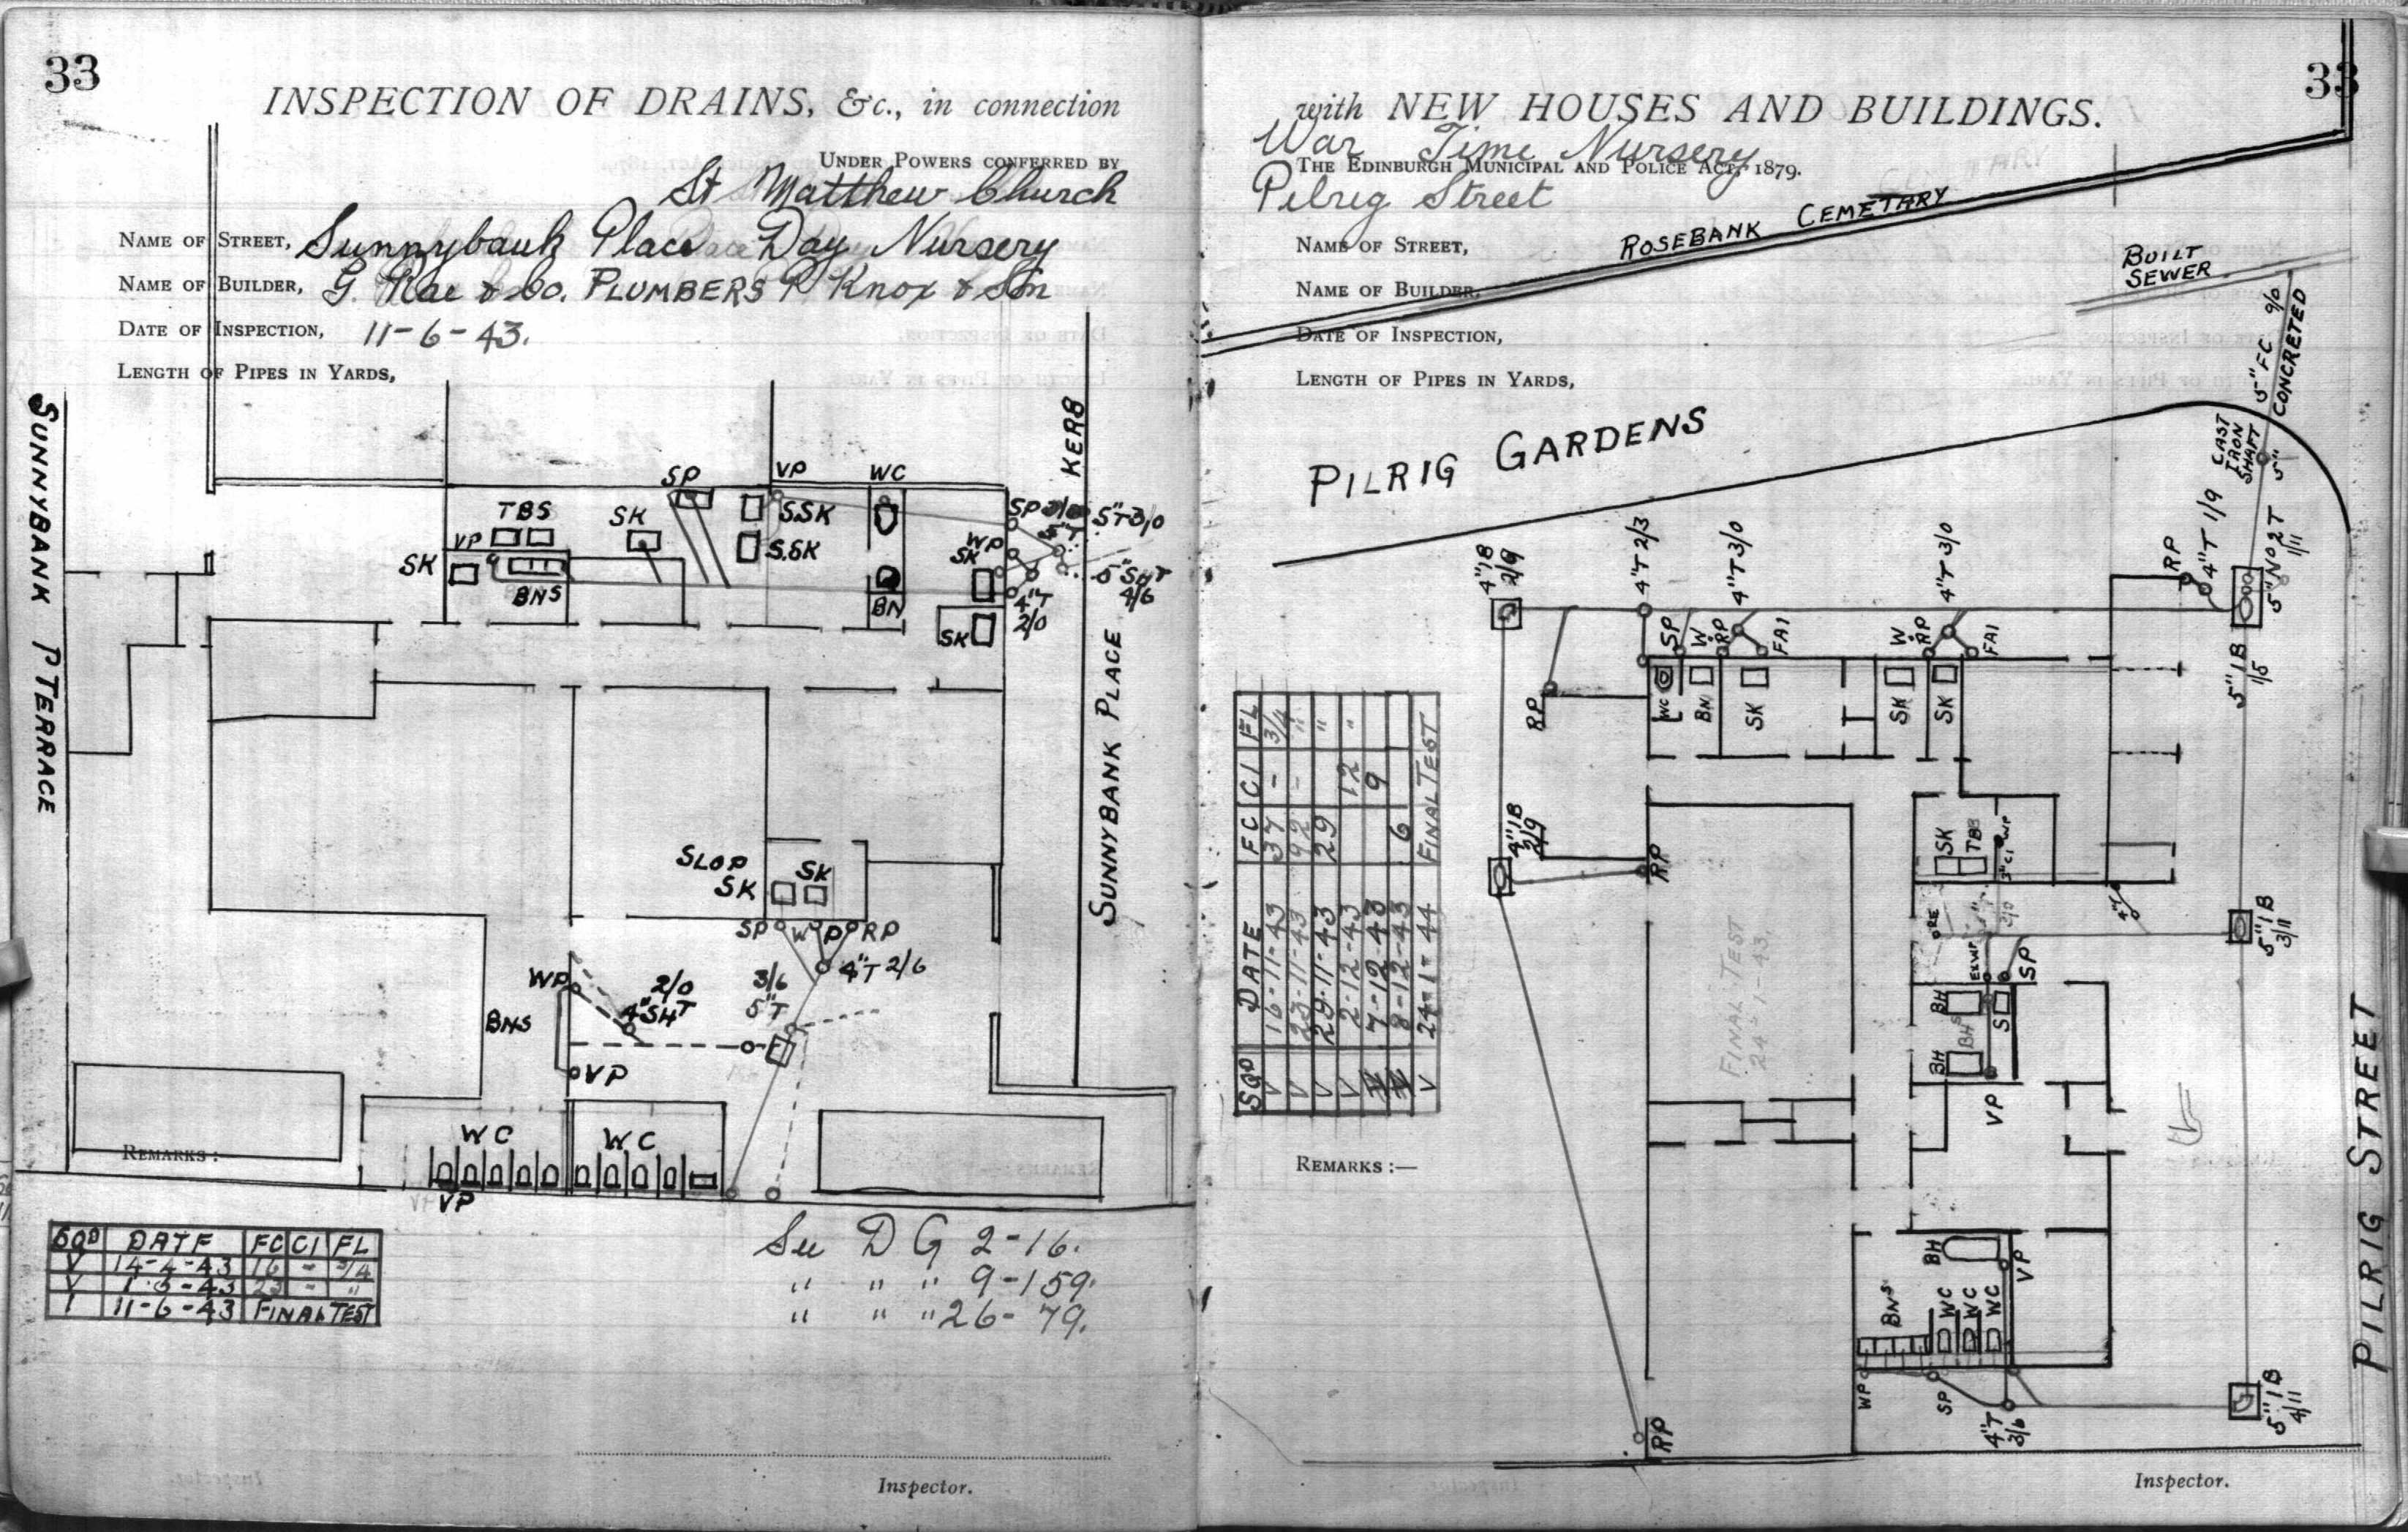 33
INSPECTION OF DRAINS, &c., in connection
UNDER POWERS CONFERRED BY
St Matthew Church
NAME OF STREET, Sunnybank Place Day Nursery
NAME OF BUILDER, G. Rae & Co. PLUMBERS P Knox & Son
DATE OF INSPECTION, 11-6-43.
LENGTH OF PIPES IN YARDS,
SUNNYBANK TERRACE
KERB
SUNNYBANK PLACE
SP
VP
WC
TBS
SK
S.SK
SP 3/0
5"T 3/0
5"T
VP
S.SK
WP
SK
SK
BNS
BN
5"SHT
4/6
4"T
2/0
SK
SLOP
SK
SK
SP
WP
RP
4"T 2/6
WP
2/0
4"SHT
3/6
5"T
BNS
VP
WC
WC
REMARKS :
VP
SQD DATE FC CI FL
V 14-4-43 16 - 3/4
V 1-5-43 23 - "
V 11-6-43 FINAL TEST
See D G 2-16.
" " " 9-159.
" " " 26-79.
Inspector.
33
with NEW HOUSES AND BUILDINGS.
War Time Nursery
THE EDINBURGH MUNICIPAL AND POLICE ACT, 1879.
Pilrig Street
NAME OF STREET,
NAME OF BUILDER,
DATE OF INSPECTION,
LENGTH OF PIPES IN YARDS,
ROSEBANK CEMETARY
BUILT
SEWER
5" FC 9/0
CONCRETED
PILRIG GARDENS
CAST
IRON
SHAFT
5"
4"1B
2/9
4"T 2/3
4"T 3/0
4"T 3/0
RP
4"T 1/9
5" No 2 T
1/11
5"1B
1/5
SP
W
RP
FAI
W
RP
FAI
RP
WC
BN
SK
SK
SK
4"1B
2/9
RP
SK
TBS
3"CI
WP
4"T
5"1B
3/11
SP
BH
BHS
S
BH
VP
FINAL TEST
24-1-43.
SQD DATE FC CI FL
V 16-11-43 37 - 3/4
V 23-11-43 92 - "
V 29-11-43 29 "
V 2-12-43 12 "
V 7-12-43 9
V 8-12-43 6
V 24-1-44 FINAL TEST
REMARKS :—
BH
VP
BNS
WC
WC
WC
WP
SP
4"T
3/6
RP
5"1B
4/11
PILRIG STREET
Inspector.